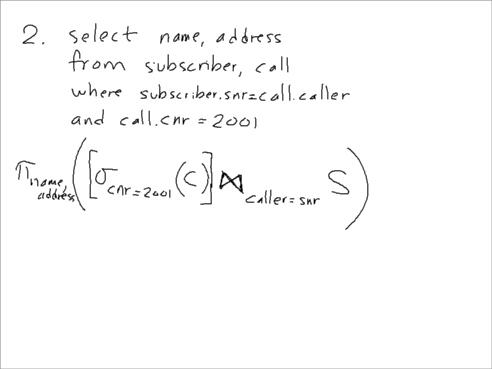 2. select name, address
from subscriber, call
where subscriber.snr=call.caller
and call.cnr = 2001
π name, address ([σ cnr=2001 (C)] ⋈ caller=snr S)